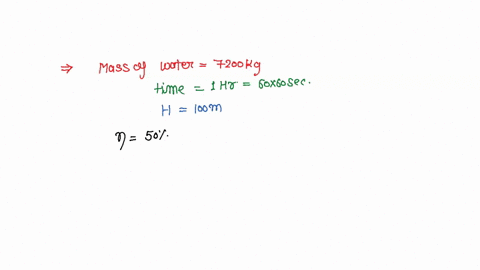 ⇒ Mass of water = 7200 kg
time = 1 Hr = 60x60 sec.
H = 100m
η = 50%.